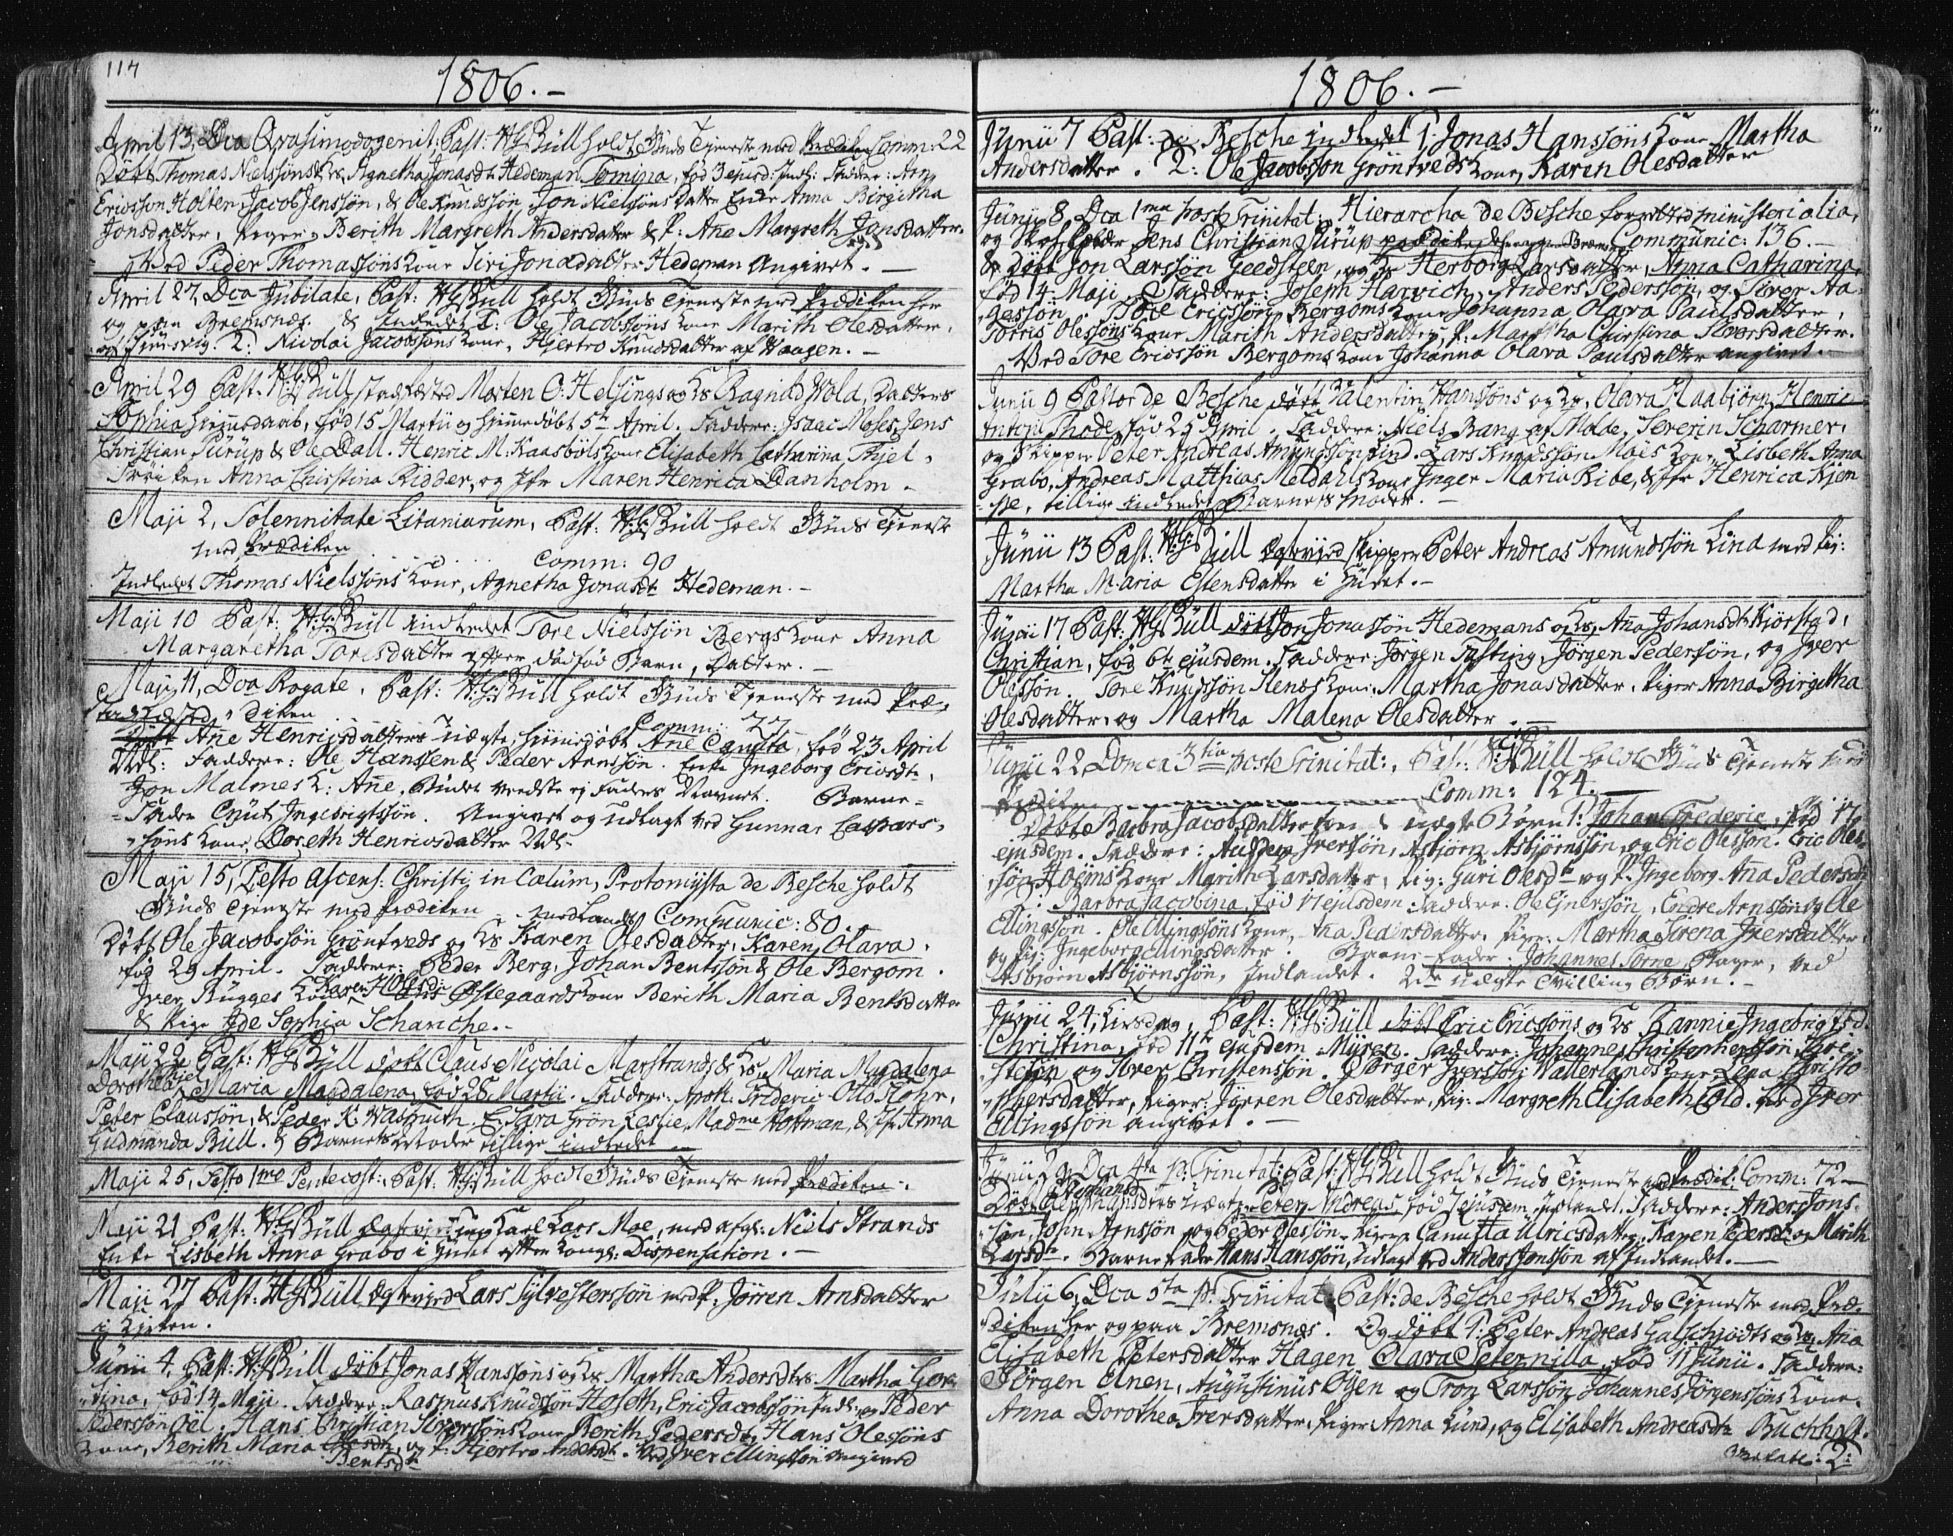 114
1806. –
April 13, Dca Qvasimodogenit: Past: H:G:Büll holdt Guds Tjeneste med Prædiken Comm: 22
Døbt Thomas Nielssøns & Hs Agnetha Jonasdt Hedeman Tomina, fød 3 ejusd: Fadder: Arn
Ericssøn Holten, Jacob Jenssøn, & Ole Knudssøn, Jon Nielssøns Enke Anna Birgitha
Jonsdatter, Piger Berith Margreth Andersdatter & P: Ane Margreth Jonsdatter.
Ved Peder Thomassøns kone Siri Jonædatter Hedeman Angivet. –
April 27, Dca Jubilate, Past: H:G:Büll holdt Guds Tjeneste med Prædiken her
og paa Bremsnæs. & Indledet 1: Ole Jacobssøns kone Marith Olesdatter,
2: Nicolai Jacobssøns kone, Hjertro Knudsdatter af Vaagen. –
April 29 Past: H:G:Büll stadfæsted Morten O: Helsings og Hs Ragnild Wold, Datters
Sophia hiemedaab, fød 15 Martii og hiemedøbt 5te April. Faddere: Isaac Moses, Jens
Christian Pürüp & Ole Dall. Henric M. Kaasbøls kone Elisabeth Catharina Thjel,
Frøiken Anna Christina Ridder, og Jfr Maren Henrica Danholm –
Maji 2, Solennitate Litaniarum, Past: H:G:Büll holdt Guds Tjeneste
med Prædiken . . . . . Comm: 90
Indledet Thomas Nielssøns kone, Agnetha Jonasdt Hedeman. –
Maji 10 Past: H:G:Büll indledet Tore Nielssøn Bergs kone Anna
Margaretha Toresdatter efter dødfød Barn, Datter. –
Maji 11, Dca Rogate, Past: H:G:Büll holdt Guds Tjeneste med Præ-
stadfæsted diken Comm: 77
Ane Henricsdatters uægte hiemedøbt Ane Canutta, fød 23 April
Udl: Faddere: Ole Hanssen & Peder Arnssøn. Enke Ingeborg Ericsdtr,
Jon Malmes K: Ane, Barnet Faders Navnet. Barne-
Fader Cnut Ingebrigtssøn. Angivet og udlagt ved Gunnar Caspars-
søns kone, Doreth Henricsdatter Udl.
Maji 15, Festo Ascens: Christi in Cœlum, Protomysta de Besche holdt
Guds Tjeneste med Prædiken Communic: 80.
Døbt Ole Jacobssøn Grøntveds og Hs Karen Olesdatter, Karen Olava,
fød 29 April. Faddere: Peder Berg, Johan Bentssøn & Ole Bergom.
Iver Rügges kone Karen Olesdtr Østegaards kone Berith Maria Bentsdatter
& Pige Ide Sophia Schanche. –
Maji 22 Past: H:G:Büll døbt Claus Nicolai Marstrands & Hs Maria Magdalena
Dorothea Maria Magdalena, fød 28 Martii. Faddere: Apoth: Frideric Otto Flohr,
Peter Claussøn, & Peder K: Wasmuth. E: Sara Grøn Leslie, Madme Hofman, & Jfr Anna
Gudmanda Büll. & Barnets Moder tillige indledet –
Maji 25, Festo 1mo Pentecost: Past: H:G:Büll holdt Guds Tjeneste med Prædiken –
Maji 21 Past: H:G:Büll Egteviet Ung Karl Lars Moe, med afg: Niels Strands
Enke Lisbeth Anna Grabo i Huset efter Kongl: Dispensation. –
Maji 27 Past: H:G:Büll Egteviet Lars Sylvesterssøn med P: Jørren Arnsdatter
i Kirken.
Junii 4, Past: H:G:Büll døbt Jonas Hanssøns og Hs Martha Andersdtrs: Martha Ger-
tina, fød 14 Maji. Faddere: Rasmus Knudssøn Hoseth, Eric Jacobssøn og Peder
Pederssøn Hans Christian Iverssøns kone Berith Pedersdtr, Hans Olessøns
kone, Berith Maria Bentsdtr, og P: Hjertro Andersdt. Ved Iver Ellingssøn angived
1806. –
Junii 7 Past: de Besche indledet 1: Jonas Hanssøns kone Martha
Andersdatter. 2: Ole Jacobssøn Grøntveds kone, Karen Olesdatter
Junii 8, Dca 1ma post Trinitat: Hierarcha de Besche forretted ministerialia,
og Jens Christian Pürüp prædikede Communic: 136. –
& døbt Jon Larssøn Geedsteen, og Hs Herborg Larsdatter, Anna Catharina,
fød 14 Maji. Faddere: Joseph Harvich, Anders Pederssøn, og Iver Aa-
gessøn. Tore Ericssøn Bergoms kone Johanna Olava Paulsdatter,
Torris Olessøns kone Marith Andersdatter, P: Martha Christina Iversdatter.
Ved Tore Ericssøn Bergoms kone Johanna Olava Paulsdatter angivet. –
Junii 9 Pastor de Besche døbt Valentin Hanssøns og Hs Olava Haabjørn, Henric
Antoni Thode, fød 25 April. Faddere: Niels Bang af Molde, Severin Scharmer,
og Skipper Peter Andreas Amundssøn Lind. Lars Knudssøn Moes kone, Lisbeth Anna
Grabo, Andreas Matthias Meldahls kone Inger Maria Ribe, & Jfr Henrica Kjem-
pe, tillige indledet Barnets Moder. –
Junii 13 Past: H:G:Büll Egteviet Skipper Peter Andreas Amundssøn Lind med Pig:
Martha Maria Estensdatter i Huset. –
Junii 17 Past: H:G:Büll døbt Jon Jonasøn Hedemans og Hs Ana Johansdtr Kjørstad,
Christian, fød 6te ejusdem. Faddere: Jørgen Fasting, Jørgen Pedersøn, og Iver
Olessøn. Tore Knudssøn Nends kone: Martha Jonasdatter, Piger Anna Birgitha
Olesdatter, og Martha Malena Olesdatter. –
Junii 22 Domca 3tia post Trinitat:, Past: H:G:Büll holdt Guds Tjeneste med
Prædiken Comm: 124. –
Døbte Barbra Jacobsdatter uægte Børn 1: Johan Frederic, fød 17
ejusdem. Faddere: Audsten Iversøn, Asbjørn Asbjørnssøn, og Eric Olssøn. Eric Oles-
søn Holms kone Marith Larsdatter, Pig: Guri Olesdtr og P: Ingeborg Ana Pedersdt
2: Barbra Jacobina, fød 17 ejusdem. Faddere: Ole Ejnerssøn, Endre Arnssøn og Ole
Ellingsøn. Ole Ellingssøns kone, Ana Pedersdatter, Piger: Martha Serena Iversdatter,
og Pig: Ingeborg Ellingsdatter. Barne-Fader: Johannes Torne Stager, ved
Asbjørn Asbjørnssøn, Indlandet. 2de uægte Tvilling Børn. –
Junii 24, Tirsdag, Past: H:G:Büll døbt Eric Ericssøns og Hs Rannie Ingebrigtsd.
Christina, fød 11te ejusdem Myren. Faddere: Johannes Christopherssøn,
og Iver Christenssøn. Børger Iverssøn Watterlands kone Lena Christo-
phersdatter, Piger: Jørren Olesdatter, Pig: Margreth Elisabeth Cold. Ved Iver
Ellingssøn angivet. –
Junii 29 Dca 4ta p: Trinitat: Past: H:G:Büll holdt Guds Tjeneste med Prædik: Comm: 72 –
Døbt Stephansdtrs uægte Peter Andreas, fød 7 ejusdem, Faddere: Anders Jons-
søn, John Arnssøn, og Peder Olessøn. Piger Canutta Ulricsdatter, Karen Pedersdt: og Marith
Larsdtr. Barnefader Hans Hanssøn, udlagt ved Anders Jonssøn af Indlandet. –
Julii 6, Dca 5ta p: Trinitat: Past: de Besche holdt Guds Tjeneste med Præ-
diken her og paa Bremsnæs. Og døbt 1: Peter Andreas Galschjødts og Hs Ana
Elisabeth Petersdatter Hagen, Olava Peternilla, fød 11 Junii. Faddere:
Jørgen Unen, Augustinus Øyen og Tron Larssøn, Johannes Jørgenssøns kone.
Anna Dorothea Iversdatter, Piger Anna Lund, og Elisabeth Andreasdtr Buchholt.
2: